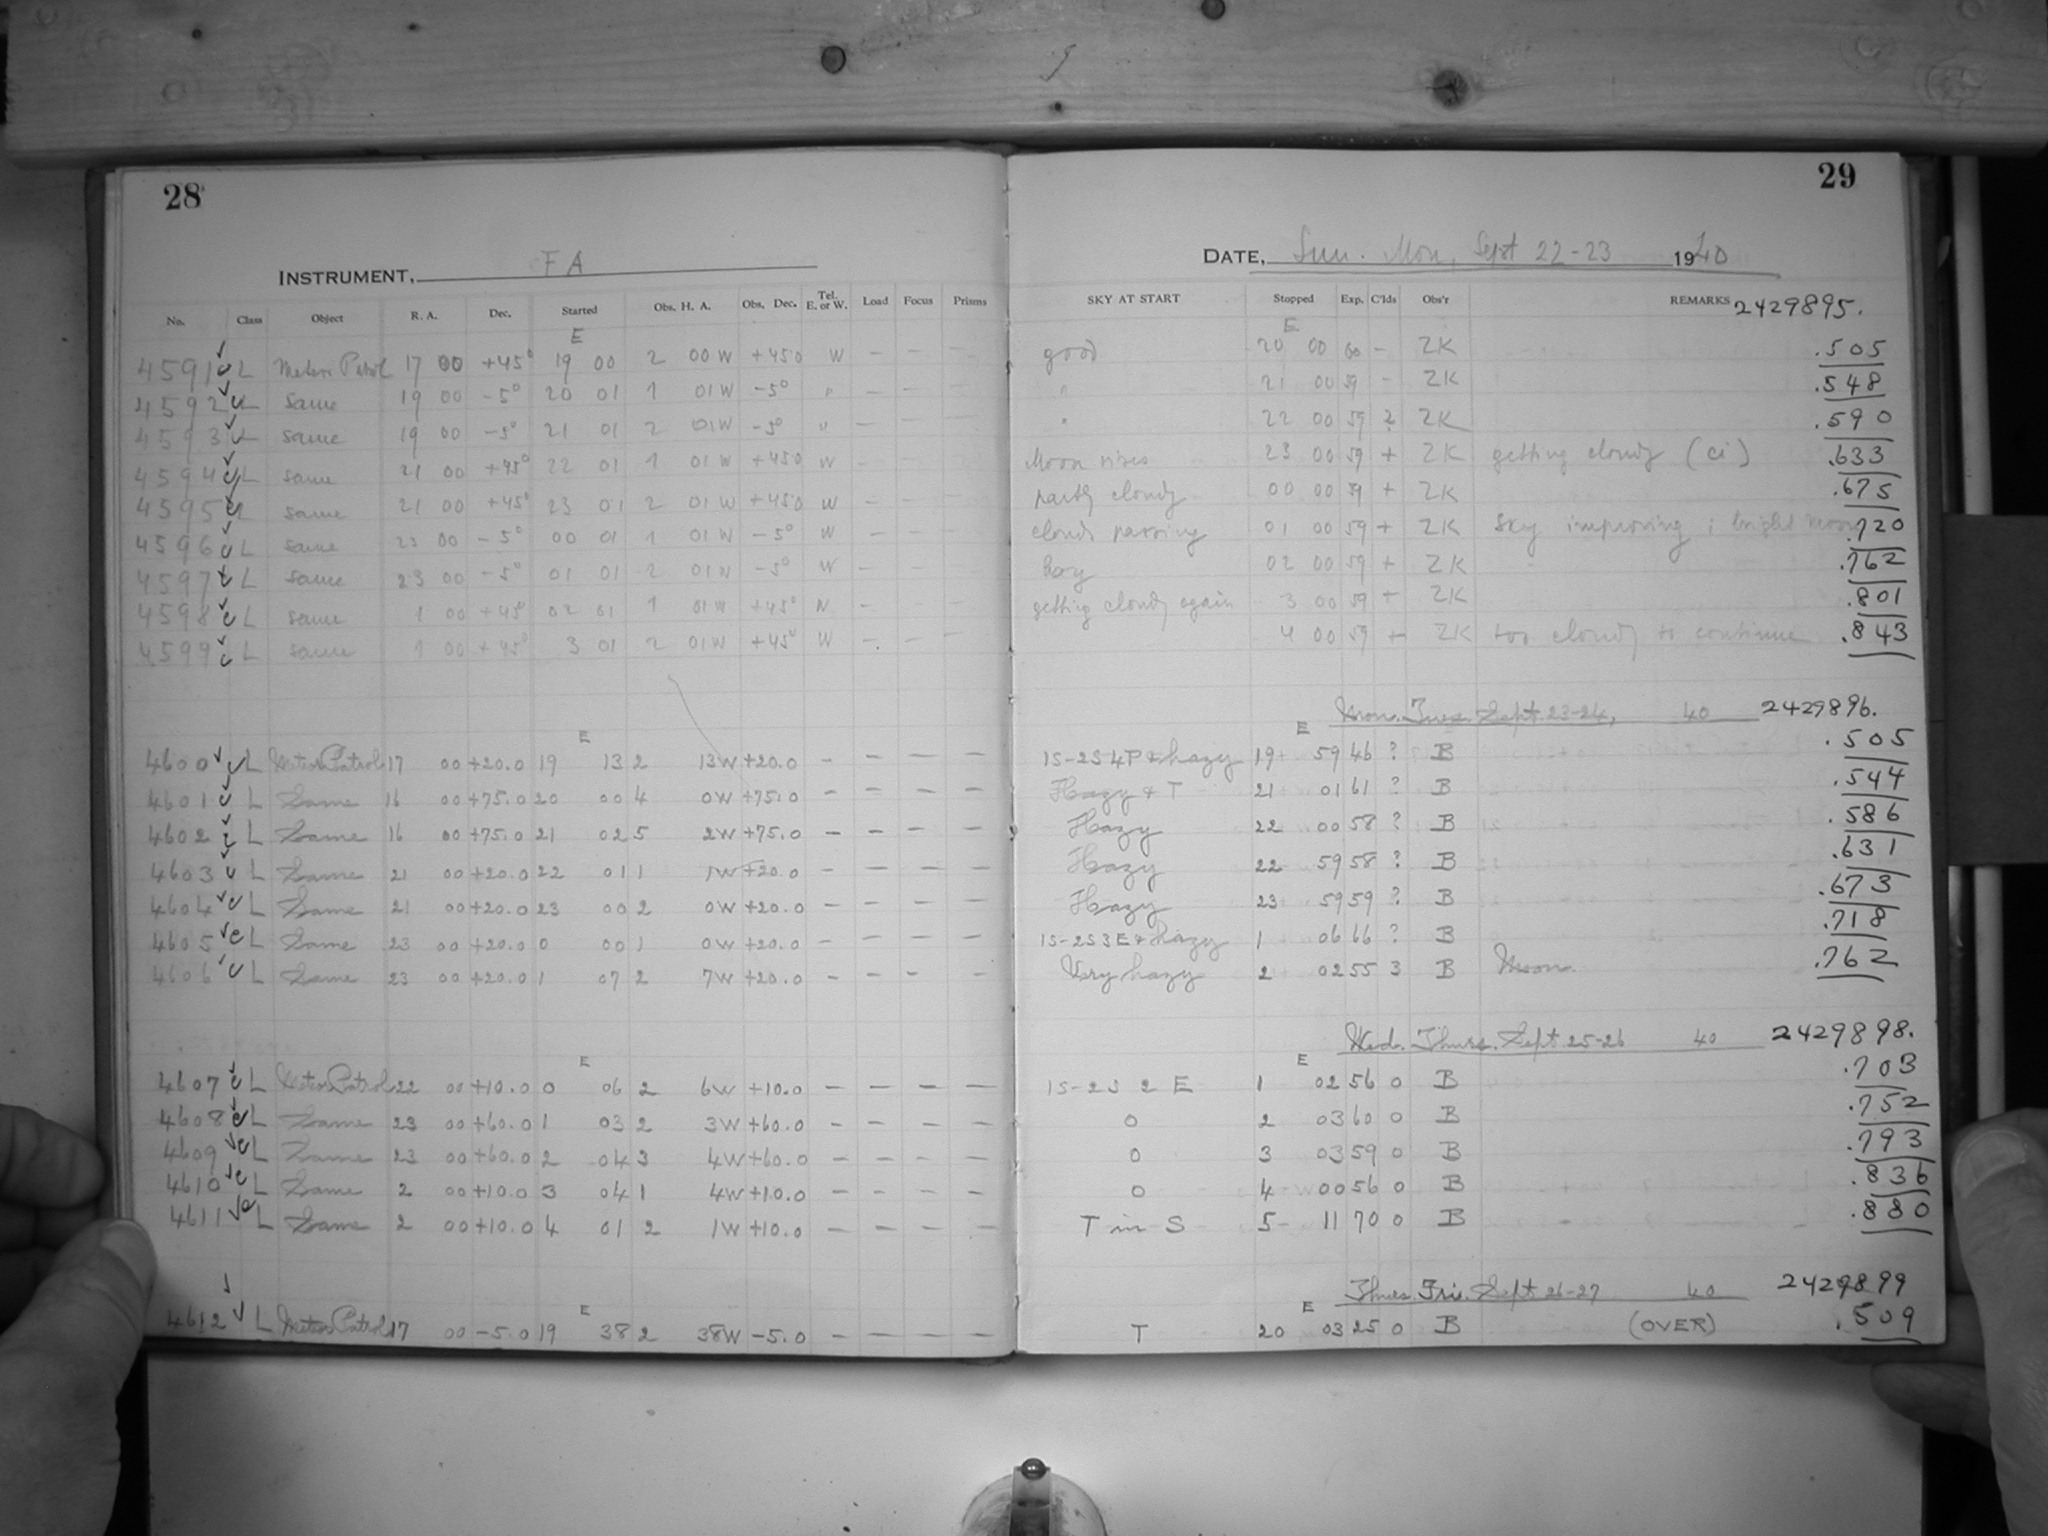 28
INSTRUMENT, FA
No. Class Object R. A. Dec. Started Obs. H. A. Obs. Dec. Tel. E. or W. Load Focus Prisms
E
4591 L Meteor Patrol 17 00 +45° 19 00 2 00 W +45.0 W – – –
4592 L same 19 00 -5° 20 01 1 01 W -5° " – – –
4593 L same 19 00 -5° 21 01 2 01 W -5° " – – –
4594 L same 21 00 +45° 22 01 1 01 W +45.0 W – – –
4595 L same 21 00 +45° 23 01 2 01 W +45.0 W – – –
4596 L same 23 00 -5° 00 01 1 01 W -5° W – – –
4597 L same 23 00 -5° 01 01 2 01 W -5° W – – –
4598 L same 1 00 +45° 02 01 1 01 W +45° W – – –
4599 L same 1 00 +45° 3 01 2 01 W +45° W – – –
E
4600 L Meteor Patrol 17 00 +20.0 19 13 2 13W +20.0 – – – –
4601 L Same 16 00 +75.0 20 00 4 0W +75.0 – – – –
4602 L Same 16 00 +75.0 21 02 5 2W +75.0 – – – –
4603 L Same 21 00 +20.0 22 01 1 1W +20.0 – – – –
4604 L Same 21 00 +20.0 23 00 2 0W +20.0 – – – –
4605 L Same 23 00 +20.0 0 00 1 0W +20.0 – – – –
4606 L Same 23 00 +20.0 1 07 2 7W +20.0 – – – –
E
4607 L Meteor Patrol 22 00 +10.0 0 06 2 6W +10.0 – – – –
4608 L Same 23 00 +60.0 1 03 2 3W +60.0 – – – –
4609 L Same 23 00 +60.0 2 04 3 4W +60.0 – – – –
4610 L Same 2 00 +10.0 3 04 1 4W +10.0 – – – –
4611 L Same 2 00 +10.0 4 01 2 1W +10.0 – – – –
E
4612 L Meteor Patrol 17 00 -5.0 19 38 2 38W -5.0 – – – –
29
DATE, Sun. Mon, Sept 22-23 1940
SKY AT START Stopped Exp. C'lds Obs'r REMARKS 2429895.
E
good 20 00 60 – ZK .505
" 21 00 59 – ZK .548
" 22 00 59 ? ZK .590
Moon rises 23 00 59 + ZK getting cloudy (ci) .633
partly cloudy 00 00 59 + ZK .675
clouds passing 01 00 59 + ZK Sky improving; bright moon .720
hazy 02 00 59 + ZK .762
getting cloudy again 3 00 59 + ZK .801
4 00 59 + ZK too cloudy to continue .843
E Mon. Tues. Sept. 23-24, 40 2429896.
1S-2S 4P & hazy 19 59 46 ? B .505
Hazy & T 21 01 61 ? B .544
Hazy 22 00 58 ? B .586
Hazy 22 59 58 ? B .631
Hazy 23 59 59 ? B .673
1S-2S 3E & hazy 1 06 66 ? B .718
Very hazy 2 02 55 3 B Moon. .762
E Wed. Thurs. Sept 25-26 40 2429898.
1S-2S 2 E 1 02 56 0 B .703
0 2 03 60 0 B .752
0 3 03 59 0 B .793
0 4 00 56 0 B .836
T in S 5 11 70 0 B .880
E Thurs. Fri. Sept 26-27 40 2429899
T 20 03 25 0 B (OVER) .509